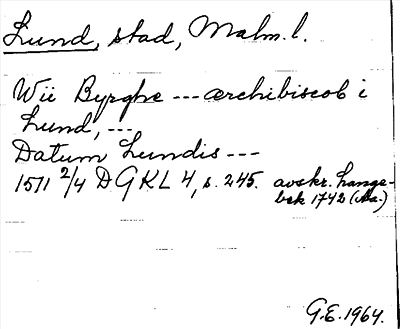 Lund, stad, Malm.l.
Wii Byrghe --- ærchibiscob i
Lund, ---
Datum Lundis ---
1511 2/4 DGKL 4, s. 245. avskr. Lange-
bek 1742 (Aa.)
G.E. 1964.